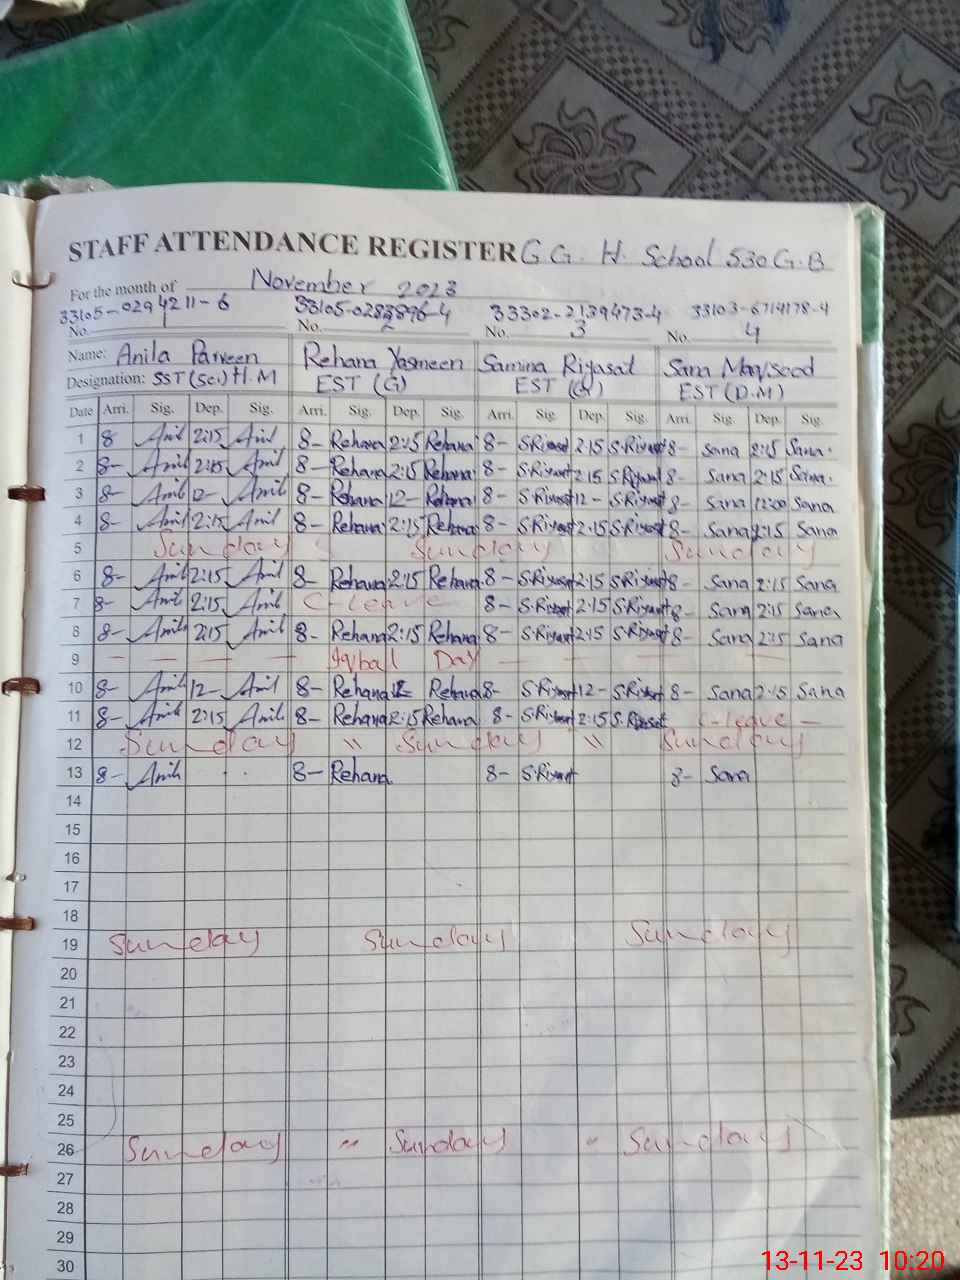 STAFF ATTENDANCE REGISTER G G. H. School 530 G.B
For the month of November 2023
33105-0294211-6 33105-0283896-4 33302-2139473-4 33103-6714178-4
No. 1 No. 2 No. 3 No. 4
Name: Anila Parveen Rehana Yasmeen Samina Riyasat Sana Maqsood
Designation: SST (Sci) H.M EST (G) EST (G) EST (D.M)
Date Arri. Sig. Dep. Sig. Arri. Sig. Dep. Sig. Arri. Sig. Dep. Sig. Arri. Sig. Dep. Sig.
1 8 Anil 2:15 Anil 8- Rehana 2:15 Rehana 8- S.Riyasat 2:15 S.Riyasat 8- Sana 2:15 Sana.
2 8- Anil 2:15 Anil 8- Rehana 2:15 Rehana 8- S.Riyasat 2:15 S.Riyasat 8- Sana 2:15 Sana.
3 8- Anil 12- Anil 8- Rehana 12- Rehana 8- S.Riyasat 12- S.Riyasat 8- Sana 12:00 Sana
4 8- Anil 2:15 Anil 8- Rehana 2:15 Rehana 8- S.Riyasat 2:15 S.Riyasat 8- Sana 2:15 Sana
5 Sunday Sunday Sunday
6 8- Anil 2:15 Anil 8- Rehana 2:15 Rehana 8- S.Riyasat 2:15 S.Riyasat 8- Sana 2:15 Sana
7 8- Anil 2:15 Anil C-leave 8- S.Riyasat 2:15 S.Riyasat 8- Sana 2:15 Sana
8 8- Anil 2:15 Anil 8- Rehana 2:15 Rehana 8- S.Riyasat 2:15 S.Riyasat 8- Sana 2:15 Sana
9 - - - - Iqbal Day - - - -
10 8- Anil 12- Anil 8- Rehana 12 Rehana 8- S.Riyasat 12- S.Riyasat 8- Sana 2:15 Sana
11 8- Anil 2:15 Anil 8- Rehana 2:15 Rehana 8- S.Riyasat 2:15 S.Riyasat C-leave -
12 Sunday " Sunday " Sunday
13 8- Anil 8- Rehana 8- S.Riyasat 8- Sana
14
15
16
17
18
19 Sunday Sunday Sunday
20
21
22
23
24
25
26 Sunday " Sunday " Sunday
27
28
29
30
13-11-23 10:20